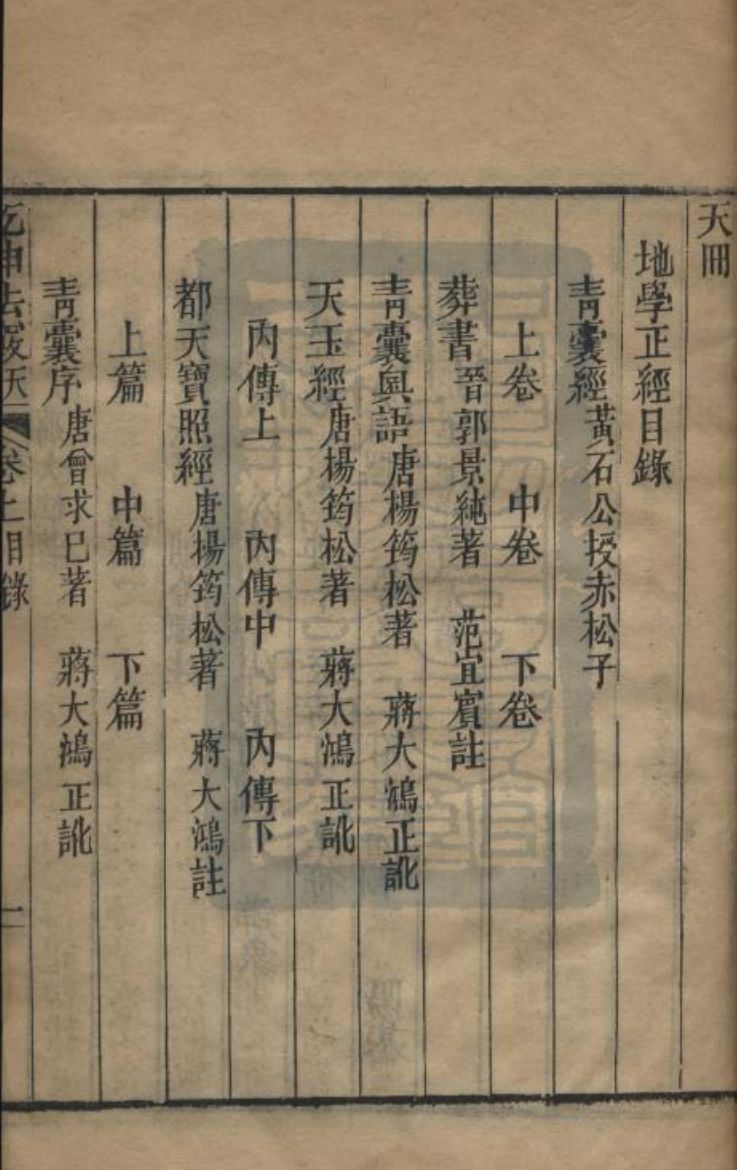 天冊
地學正經目錄
青囊經 黃石公授赤松子
上卷 中卷 下卷
葬書 晉郭景純著 范宜賓註
青囊奧語 唐楊筠松著 蔣大鴻正訛
天玉經 唐楊筠松著 蔣大鴻正訛
內傳上 內傳中 內傳下
都天寶照經 唐楊筠松著 蔣大鴻註
上篇 中篇 下篇
青囊序 唐曾求己著 蔣大鴻正訛
乾坤法竅天 卷上目錄 一